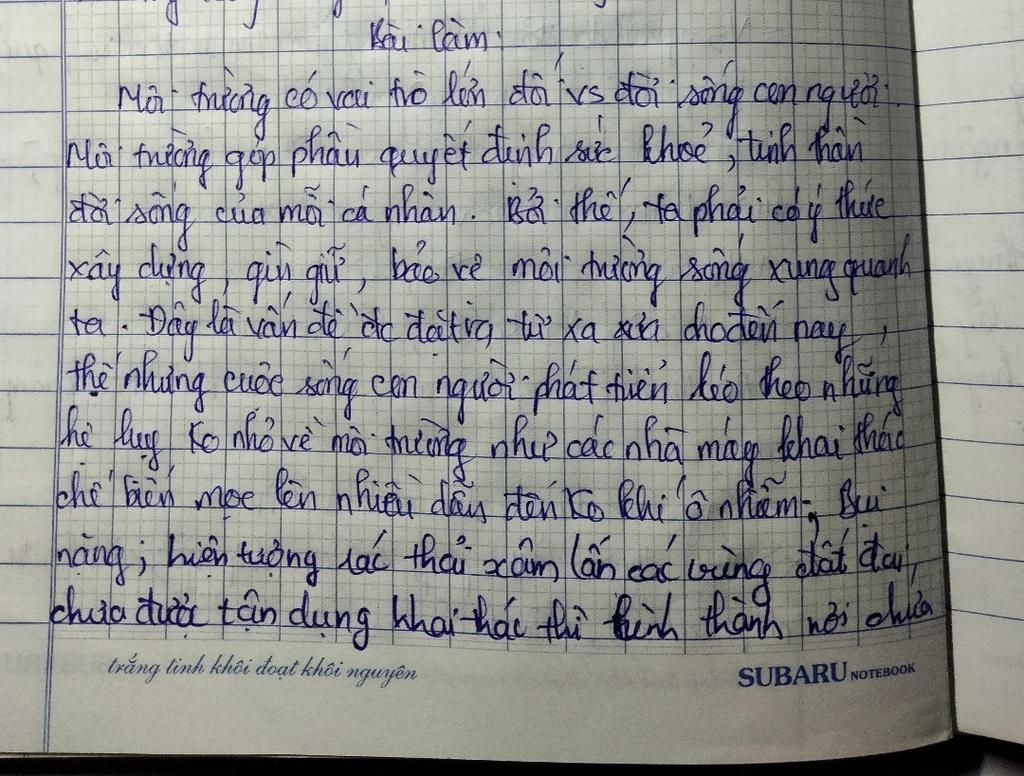 Bài làm:
Môi trường có vai trò lớn đối vs đời sống con người.
Môi trường góp phần quyết định sức khoẻ, tinh thần
đời sống của mỗi cá nhân. Bởi thế, ta phải có ý thức
xây dựng, gìn giữ, bảo vệ môi trường sống xung quanh
ta. Đây là vấn đề đc đặt ra từ xa xưa cho đến nay,
thế nhưng cuộc sống con người phát triển kéo theo những
hệ luỵ ko nhỏ về môi trường như các nhà máy khai thác
chế biến mọc lên nhiều dẫn đến ko khí ô nhiễm, bụi
nặng; hiện tượng rác thải xâm lấn các vùng đất đai,
chưa được tận dụng khai thác thì hình thành nơi chứa
trắng tinh khôi đoạt khôi nguyên
SUBARU NOTEBOOK